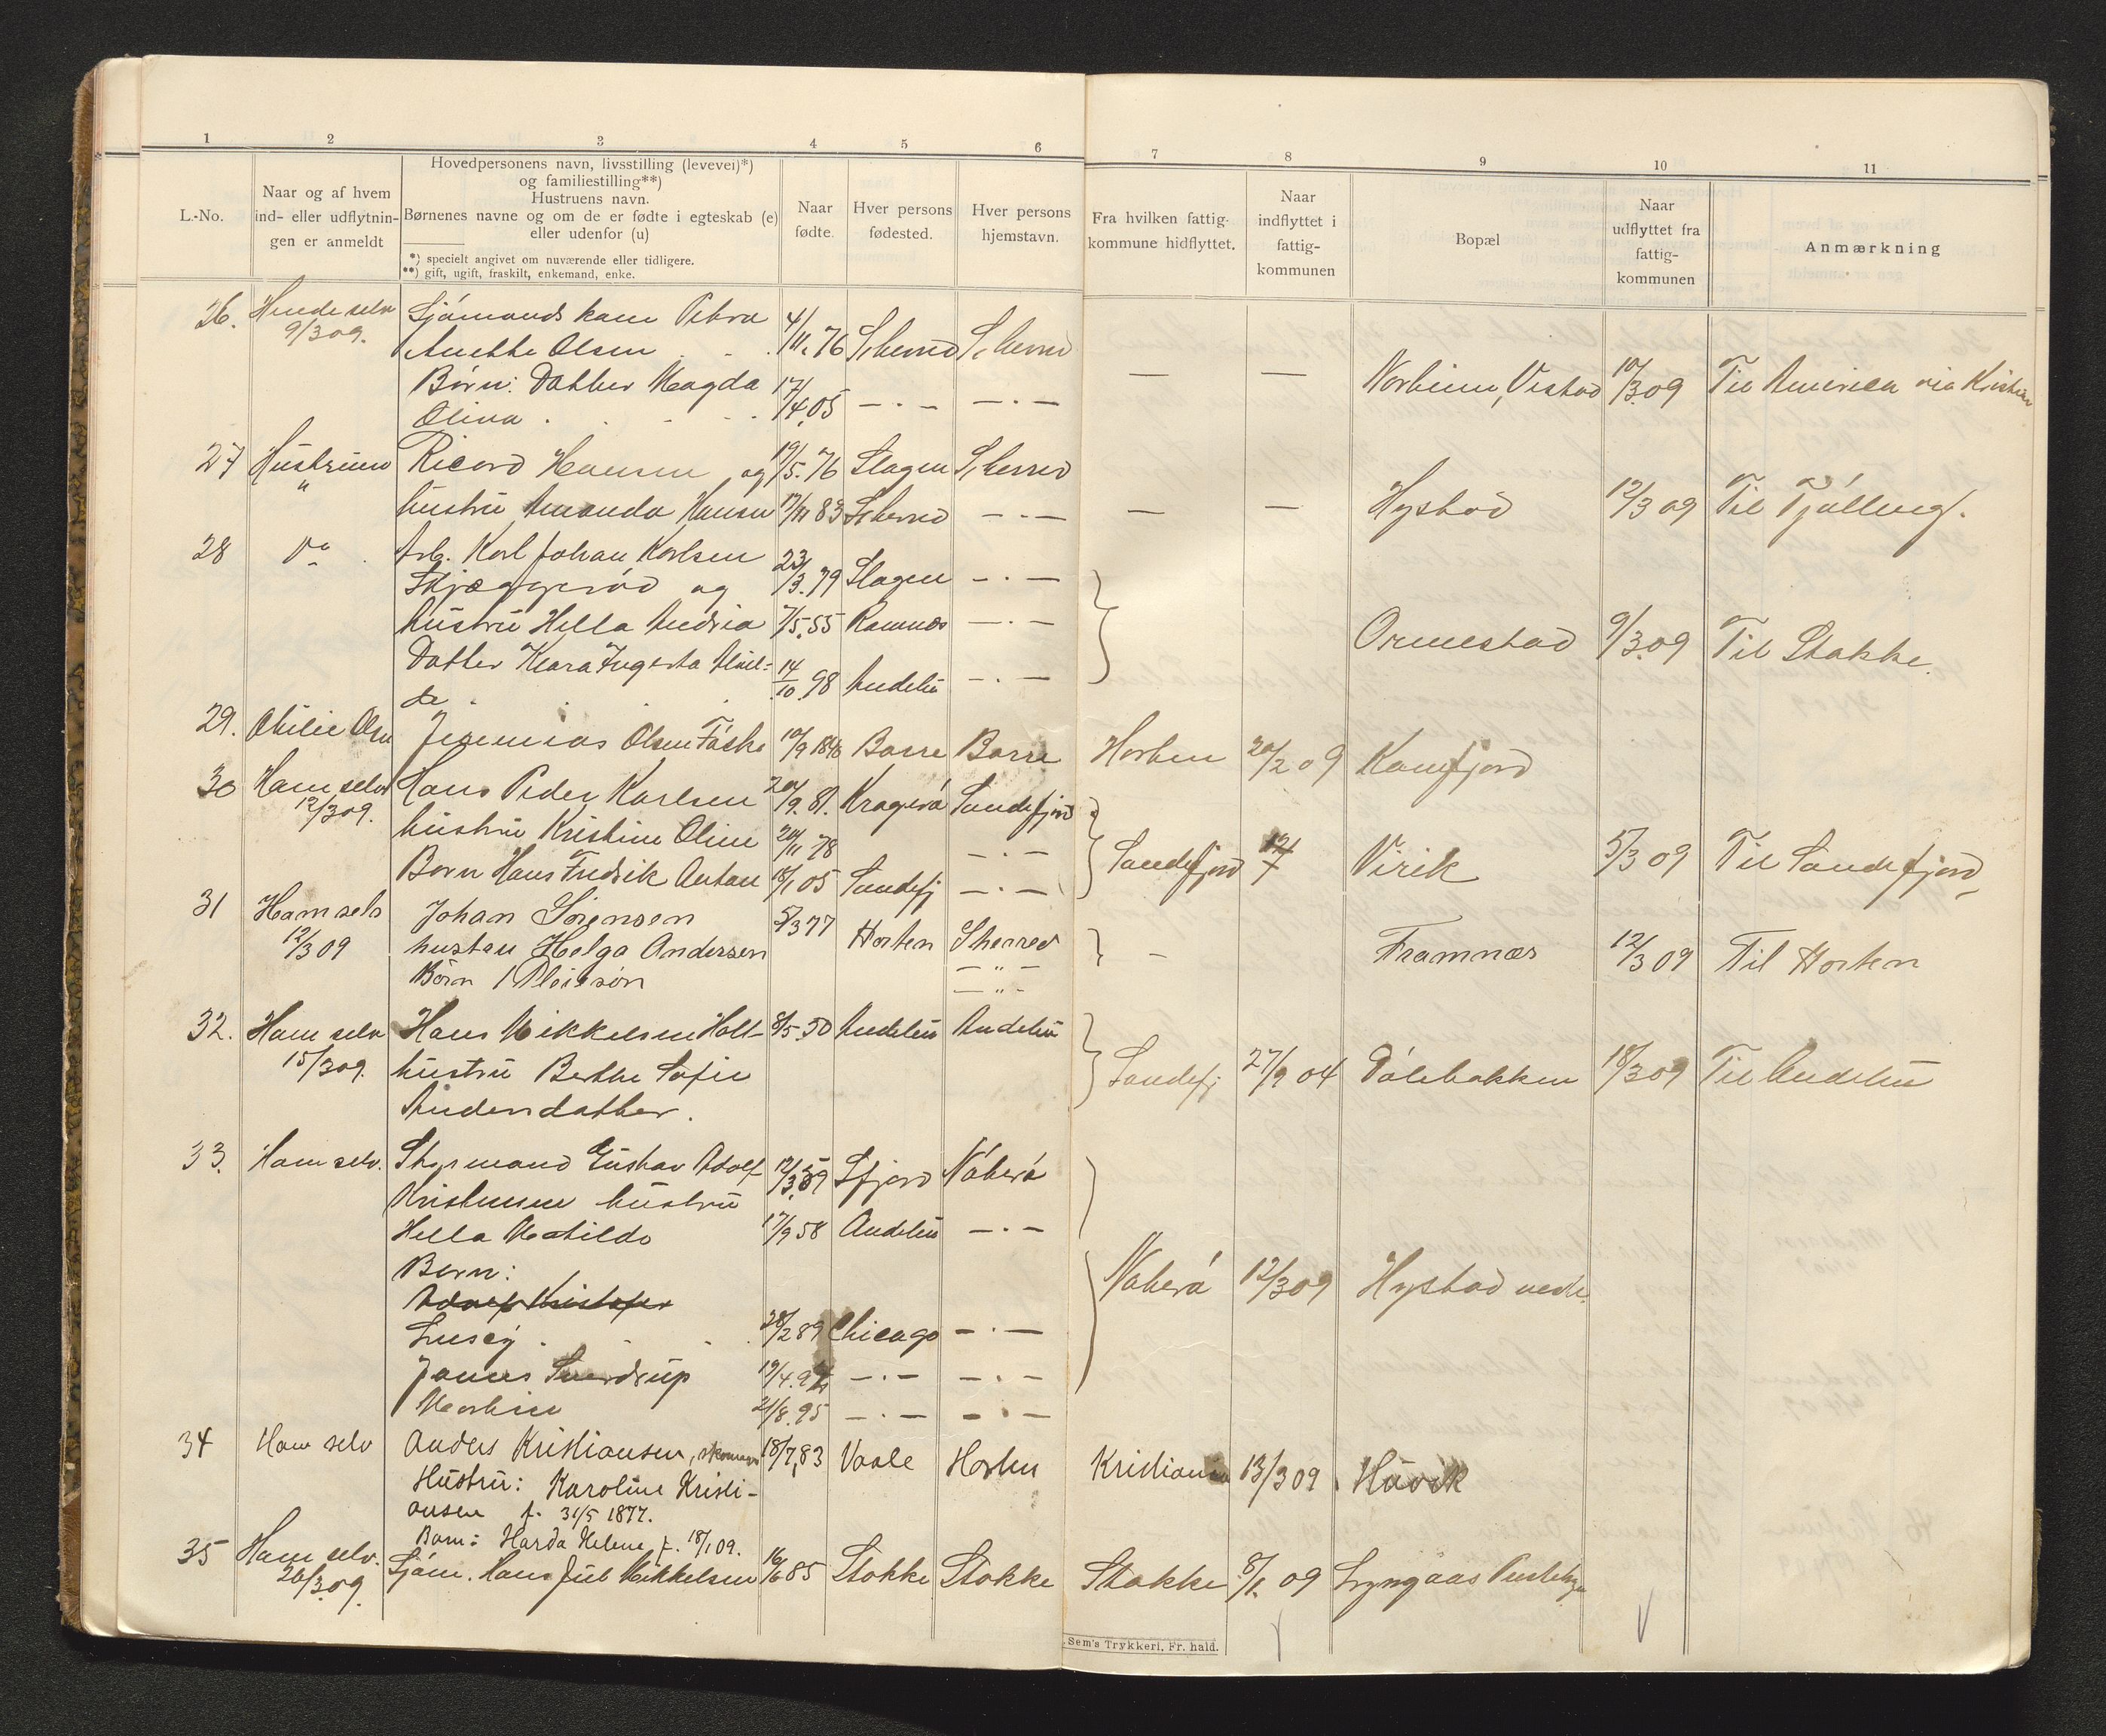 1 2 3 4 5 6 7 8 9 10 11
L.-No.
Naar og af hvem
ind- eller udflytnin-
gen er anmeldt
Hovedpersonens navn, livsstilling (levevei)*)
og familiestilling**)
Hustruens navn.
Børnenes navne og om de er fødte i egteskab (e)
eller udenfor (u)
*) specielt angivet om nuværende eller tidligere.
**) gift, ugift, fraskilt, enkemand, enke.
Naar
fødte.
Hver persons
fødested.
Hver persons
hjemstavn.
Fra hvilken fattig-
kommune hidflyttet.
Naar
indflyttet i
fattig-
kommunen
Bopæl
Naar
udflyttet fra
fattig-
kommunen
Anmærkning
26. Hende selv Sjömands kone Petra 4/
9/3 09. Anette Olsen 11.76 Sherred Sherred
Børn: Datter Magda 17/ — — 10/3 09 Til America via
Olina 4.05 — . — — . —
27 Hustruen Ricard Hansen og 19/5.76 Slagen Sherred
" hustru Amanda Hansen 17/11 83 Sherred — . — — — Hystad 12/3 09 Til Tjölling.
28 Do Arb. Karl Johan Karlsen 23/
Skjæggerød og 3.79 Slagen — . —
hustru Hella Andrea 7/5.55 Ramnes — . — Ormestad 9/3.09 Til Stokke.
Datter Klara Ingerta 14/
10.98 Andebu — . —
29. Jeremias Olsen 10/9 1846 Borre Borre Horten 20/2 09 Kamfjord
30 Ham selv Hans Peder Karlsen 20/9.81. Kragerö Sandefjord
12/3 09. hustru Kristine Oline 20/11 78 — . — Sandefjord Virik 5/3 09 Til Sandefjord
Born Hans Fredrik Anton 18/1 05 Sandefj — . —
31 Ham selv Johan Sörensen 5/3 77
12/3 09 hustru Helga Andersen Horten Sherred — Framnæs 12/3 09 Til Horten
Börn — " —
— " —
32. Ham selv Hans Mikkelsen Holt 8/5.50 Andebu Andebu
15/3 09. hustru Berthe Sofie Sandefj 27/9 04 Dölebakken 18/3 09 Til Andebu
Andersdatter.
33. Ham selv. Styrmand Gustav Adolf 12/3.59 Sfjord Nöterö
Kristensen hustru
Hella Matilde 17/9 58 Andebu — . —
Børn:
Adolf Kristofer Nöterö 12/3 09 Hystad
28/2 89 Chicago — . —
James Sverdrup 19/4.92 — . — — . —
21/8.95 — . — — . —
34 Ham selv Anders Kristiansen, 18/7, 83 Vaale Horten Kristiania 13/3 09 Huvik
Hustru: Karoline Kristi-
ansen f. 31/5 1877.
Barn: Harda Helene f. 18/1 09.
35 Ham selv. Sjöm. Hans Jul Mikkelsen 16/6 85 Stokke Stokke Stokke 8/1. 09
26/3.09.
Sem's Trykkeri, Fr. hald.